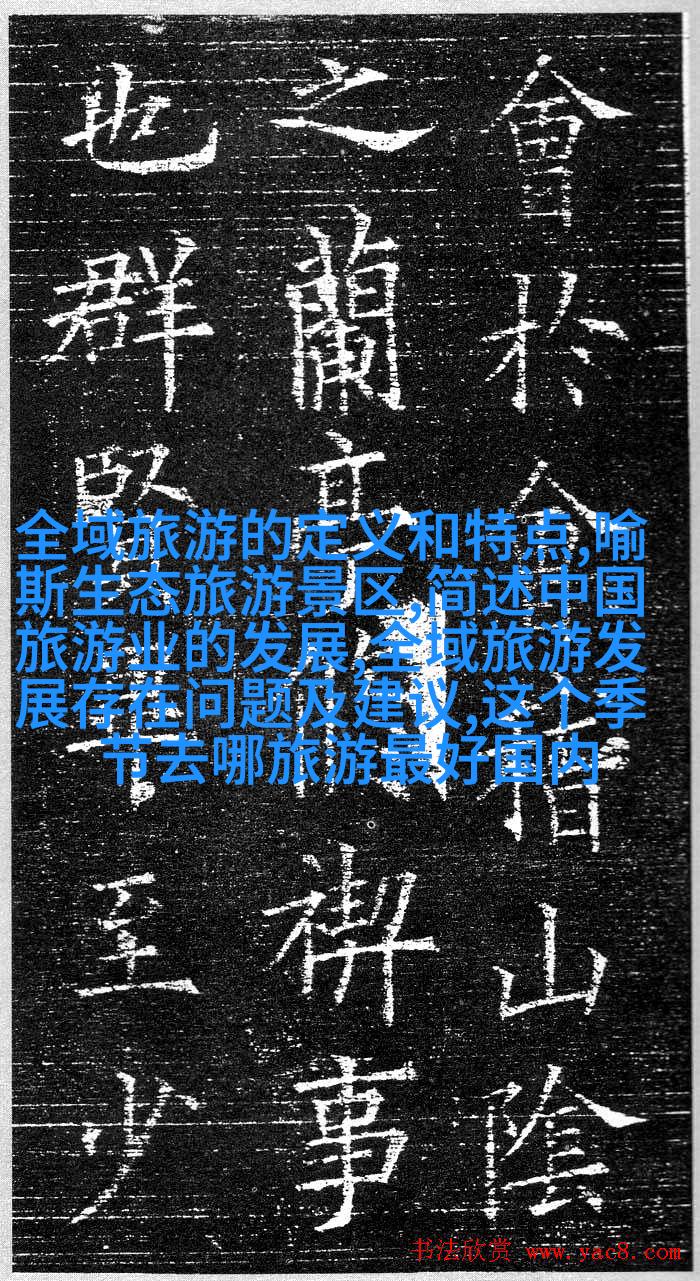 會於會稽山陰
之蘭亭禊事
也群賢至少
全域旅游的定义和特点,喻
斯生态旅游景区,简述中国
旅游业的发展,全域旅游发
展存在问题及建议,这个季
节去哪旅游最好国内
书法欣赏 www.yac8.com